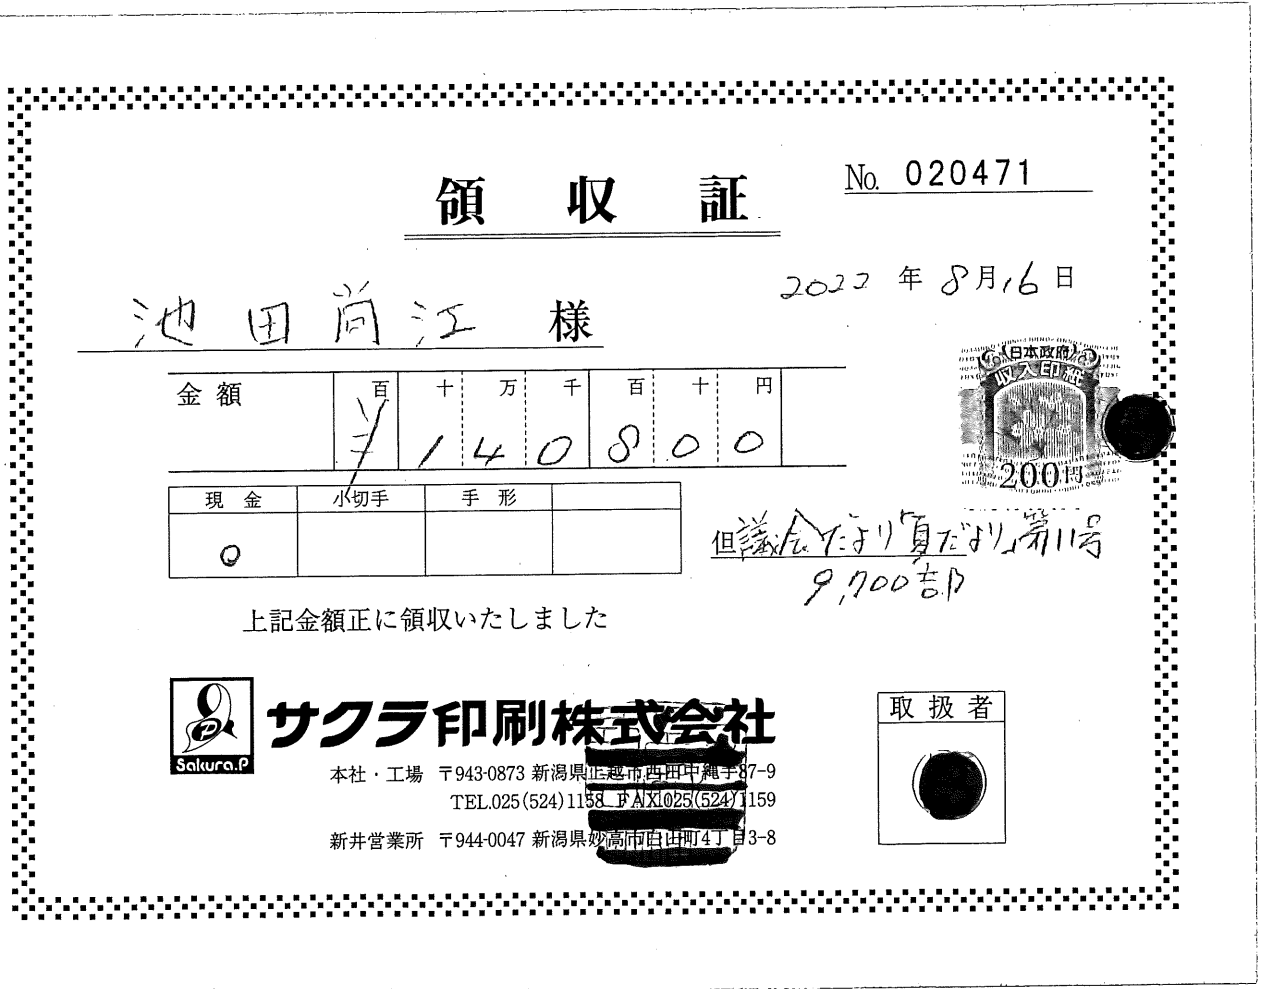 領収証
No. 020471
2022年8月16日
池田尚江 様
日本政府
収入印紙
200円
金額 百 十 万 千 百 十 円
¥ 1 4 0 8 0 0
現金 小切手 手形
但 議会だより「夏だより」第11号
9,700部
上記金額正に領収いたしました
Sakura.P
サクラ印刷株式会社
本社・工場 〒943-0873 新潟県上越市西田中縄手87-9
TEL.025(524)1158 FAX025(524)1159
新井営業所 〒944-0047 新潟県妙高市白山町4丁目3-8
取扱者